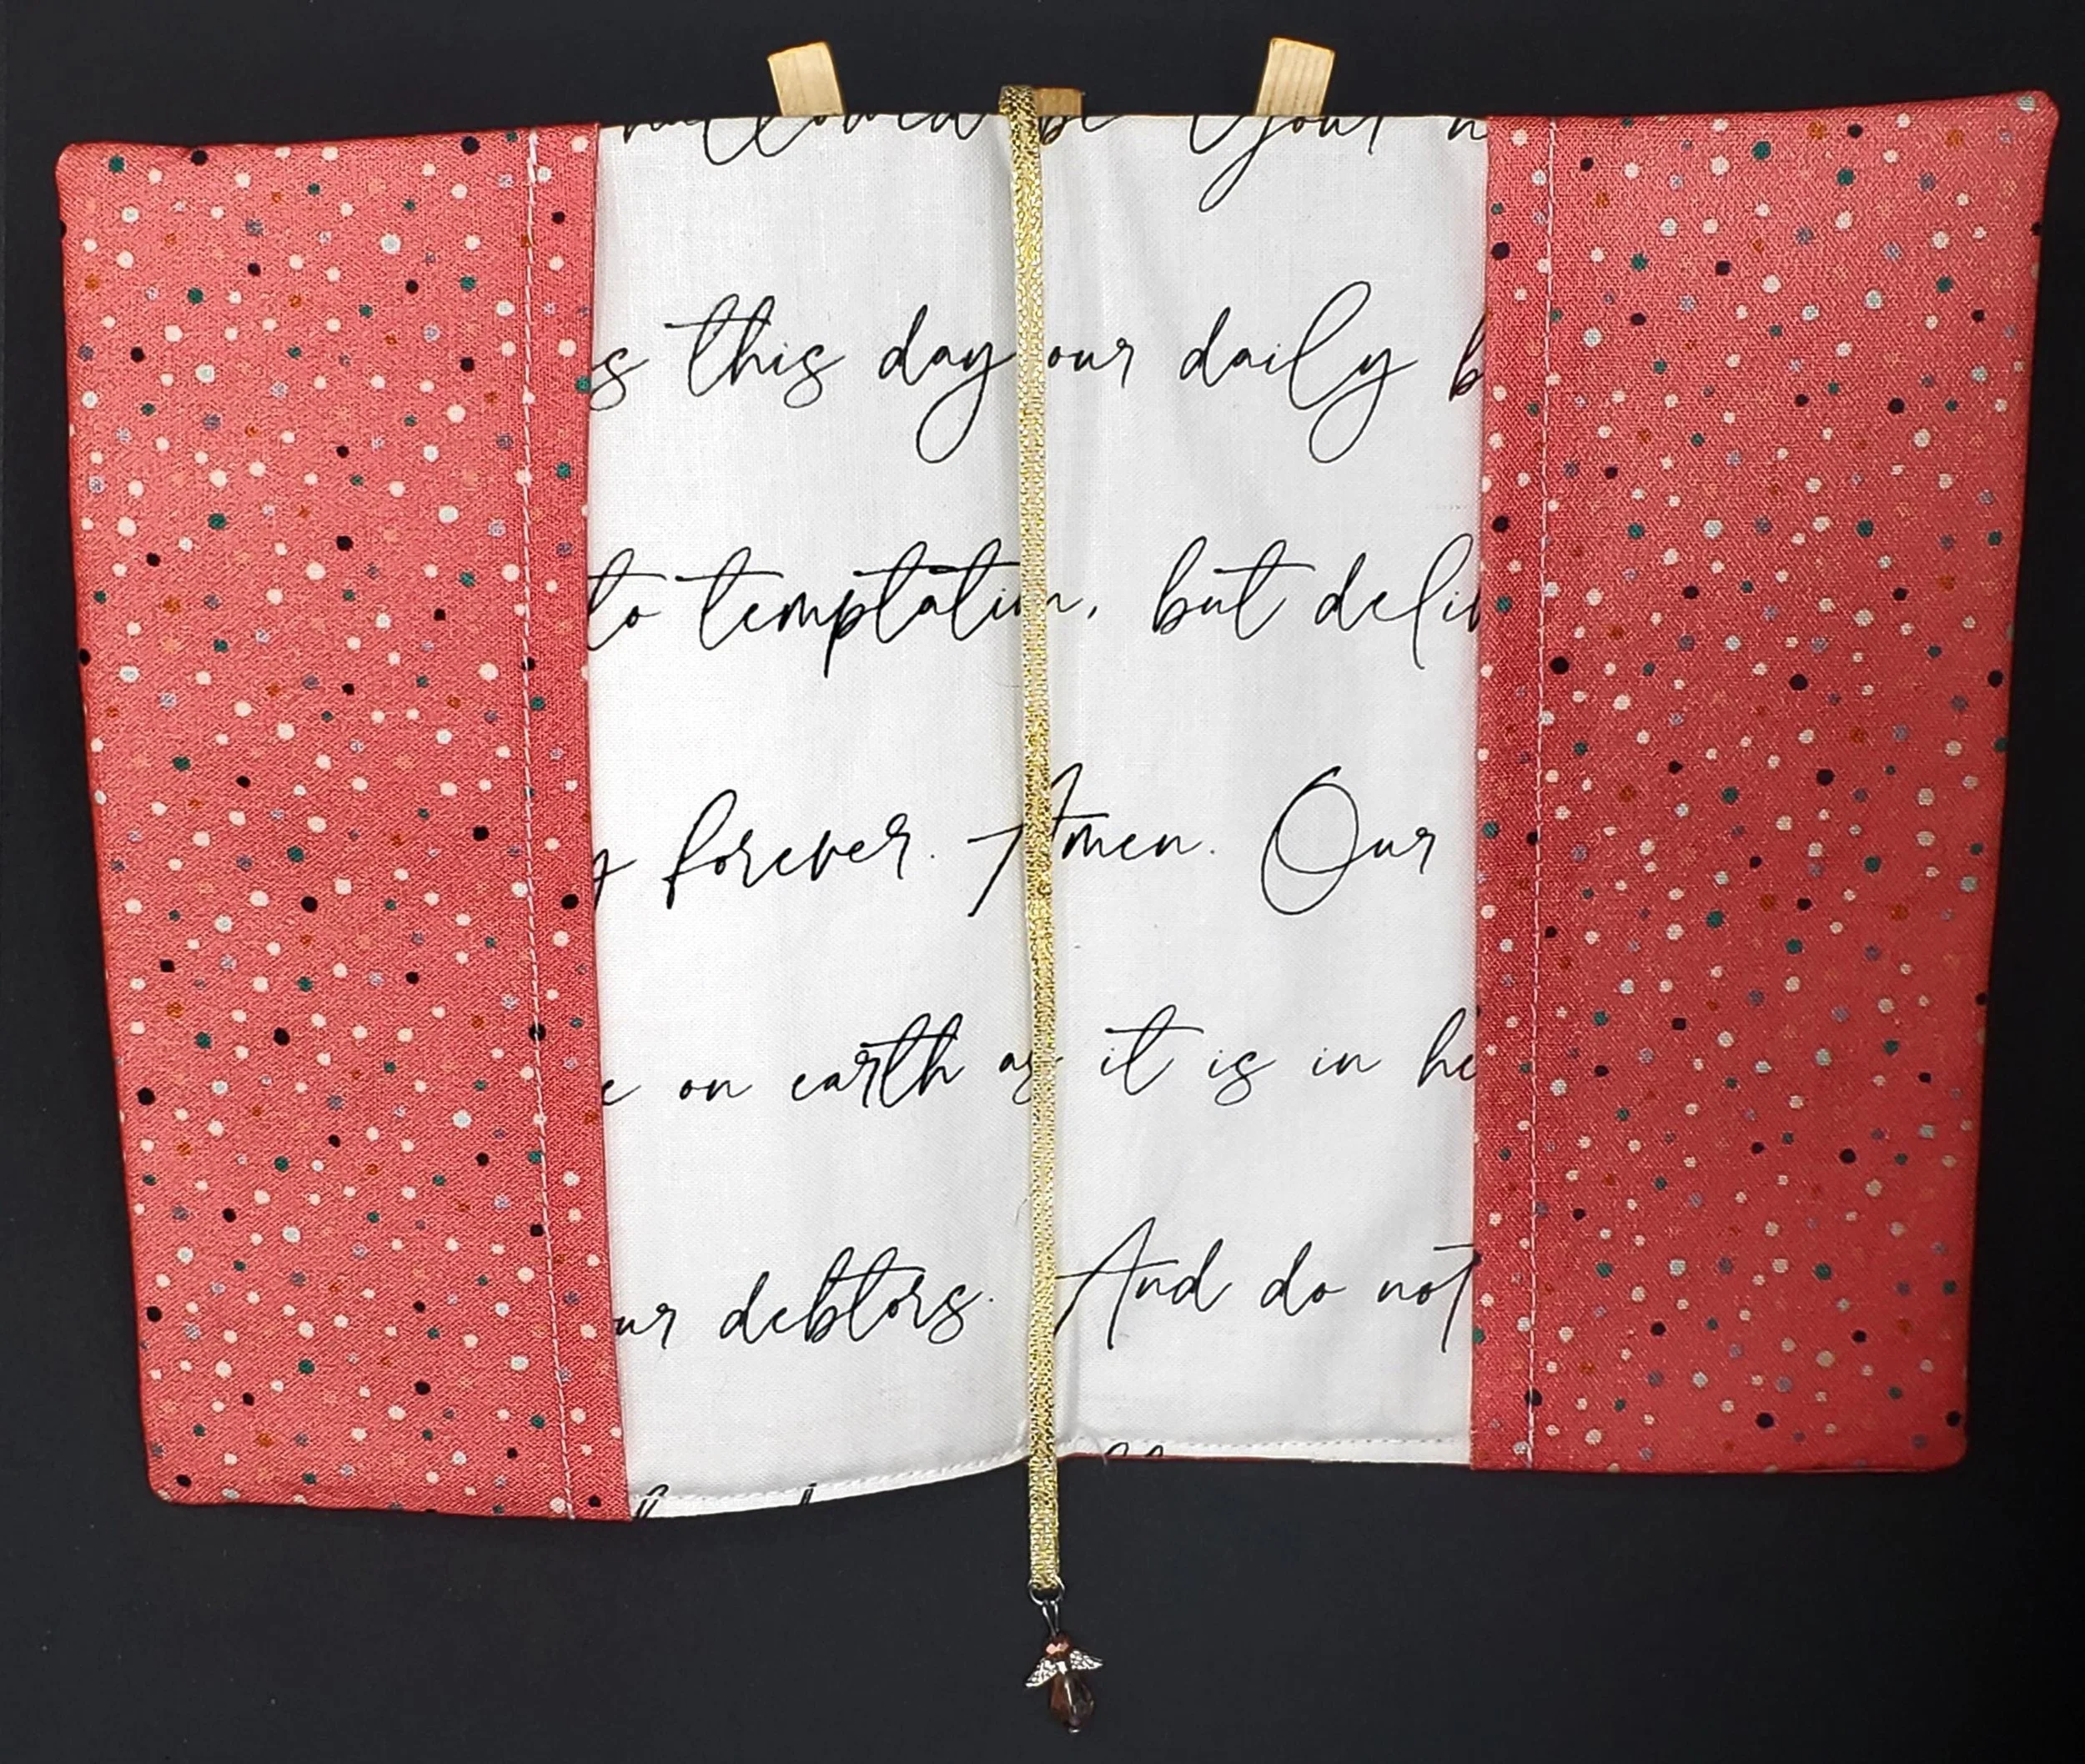 hallowed be Your n
s this day our daily b
to temptation, but deliv
y forever. Amen. Our
e on earth as it is in he
ur debtors. And do not